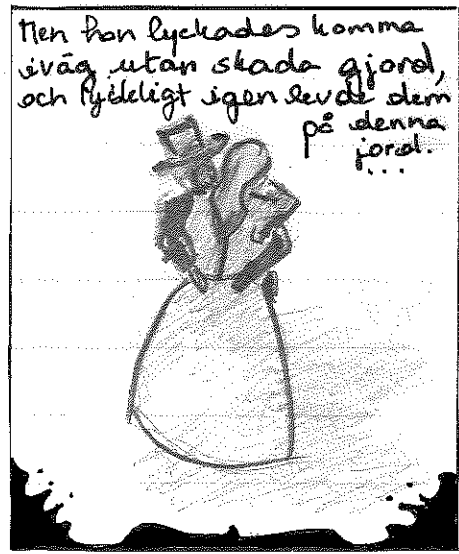 Men hon lyckades komma
iväg utan skada gjord,
och lyckligt igen levde dem
på denna
jord.
...